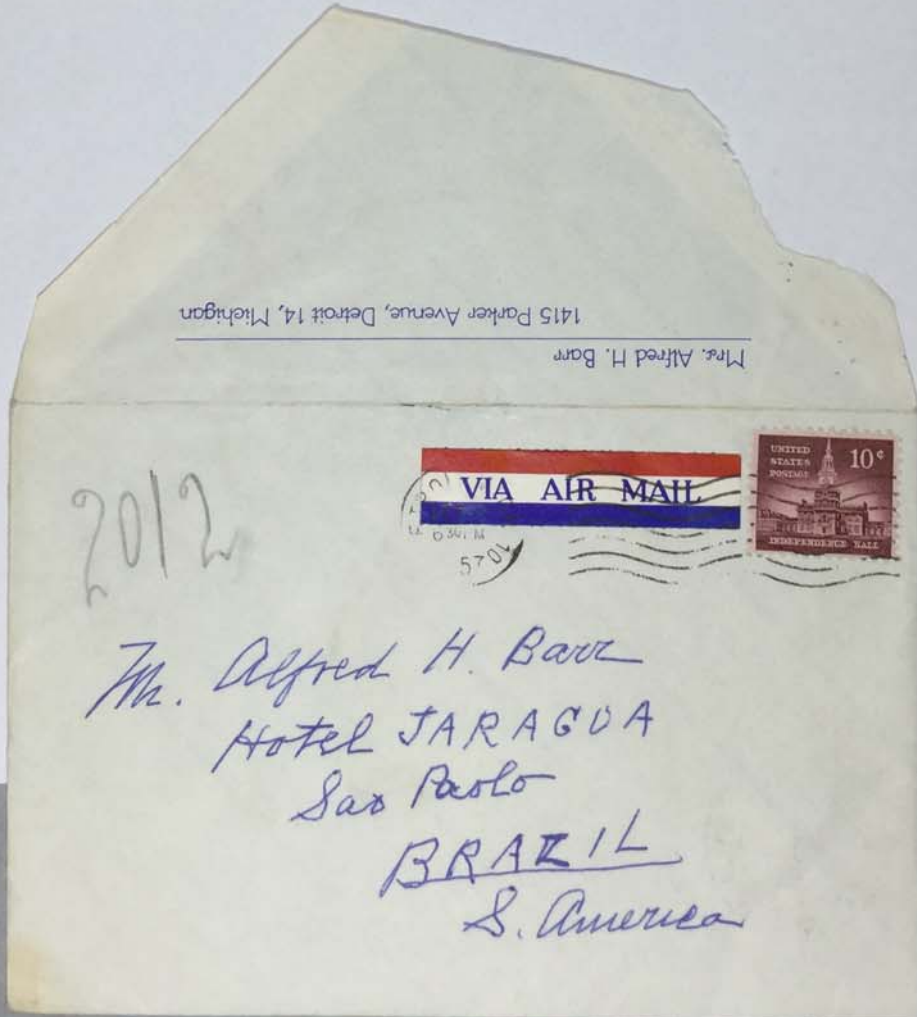 Mrs. Alfred H. Barr
1415 Parker Avenue, Detroit 14, Michigan
VIA AIR MAIL
UNITED
STATES
POSTAGE
10¢
INDEPENDENCE HALL
2012
Mr. Alfred H. Barr
Hotel JARAGUA
Sao Paolo
BRAZIL
S. America